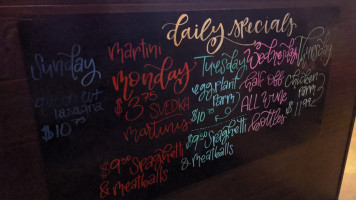 daily specials
Sunday
lasagna
$10.75
martini
monday
$3.75
SVEDKA
martinis
$9.50 Spaghetti
& meatballs
Tuesday
eggplant
Parm
$10.75
$9.50 Spaghetti
& meatballs
Wednesday
half off
All wine
bottles
Thursday
Chicken
Parm
$11.95